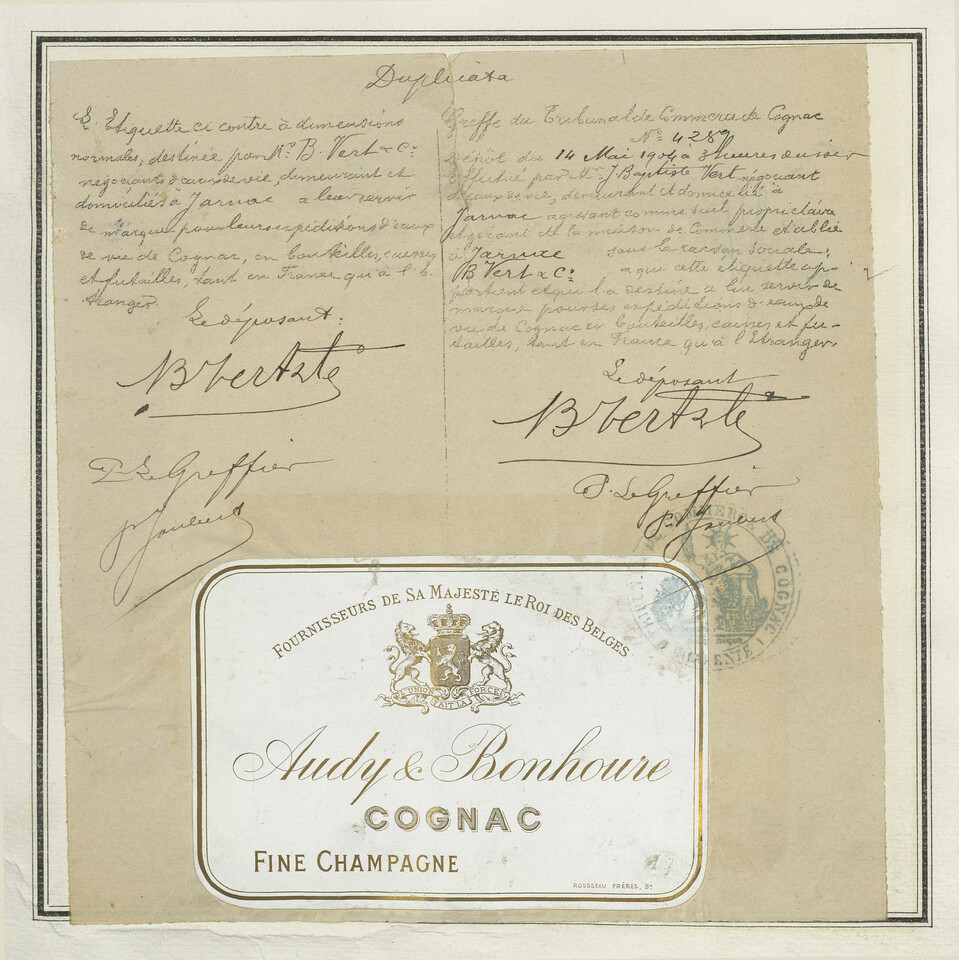 Duplicata
L'Etiquette ci contre à dimensions
normales, destinée par Mrs B. Vert & Cie
négociants d'eaux de vie, demeurant et
domiciliés à Jarnac a leur servir
de marque pour leurs expéditions d'eaux
de vie de Cognac, en bouteilles, caisses
et futailles, tant en France qu'à l'é-
tranger.
Le déposant:
B Vert & Cie
P. Le Greffier
Greffe du Tribunal de Commerce de Cognac
No 4289
Dépôt du 14 Mai 1904 à 3 heures du soir
effectué par Mr J. Baptiste Vert négociant
d'eaux de vie, demeurant et domicilié à
Jarnac agissant comme seul propriétaire
et gérant de la maison de Commerce établie
à Jarnac sous la raison sociale:
B Vert & Cie a que cette étiquette ap-
partient et qu'il a destine a lui servir de
marque pour ses expéditions d'eaux de
vie de Cognac en bouteilles, caisses et fu-
tailles, tant en France qu'à l'Etranger.
Le déposant
B Vert & Cie
P. Le Greffier
COMMERCE DE COGNAC
FOURNISSEURS DE SA MAJESTÉ LE ROI DES BELGES
L'UNION FAIT LA FORCE
Audy & Bonhoure
COGNAC
FINE CHAMPAGNE
ROUSSEAU FRÈRES, Bx